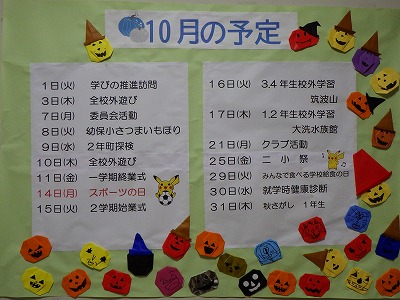 10月の予定
1日(火) 学びの推進訪問
3日(木) 全校外遊び
7日(月) 委員会活動
8日(火) 幼保小さつまいもほり
9日(水) 2年町探検
10日(木) 全校外遊び
11日(金) 一学期終業式
14日(月) スポーツの日
15日(火) 2学期始業式
16日(火) 3.4年生校外学習
筑波山
17日(木) 1.2年生校外学習
大洗水族館
21日(月) クラブ活動
25日(金) 二小祭
29日(火) みんなで食べる学校給食の日
30日(水) 就学時健康診断
31日(木) 秋さがし 1年生